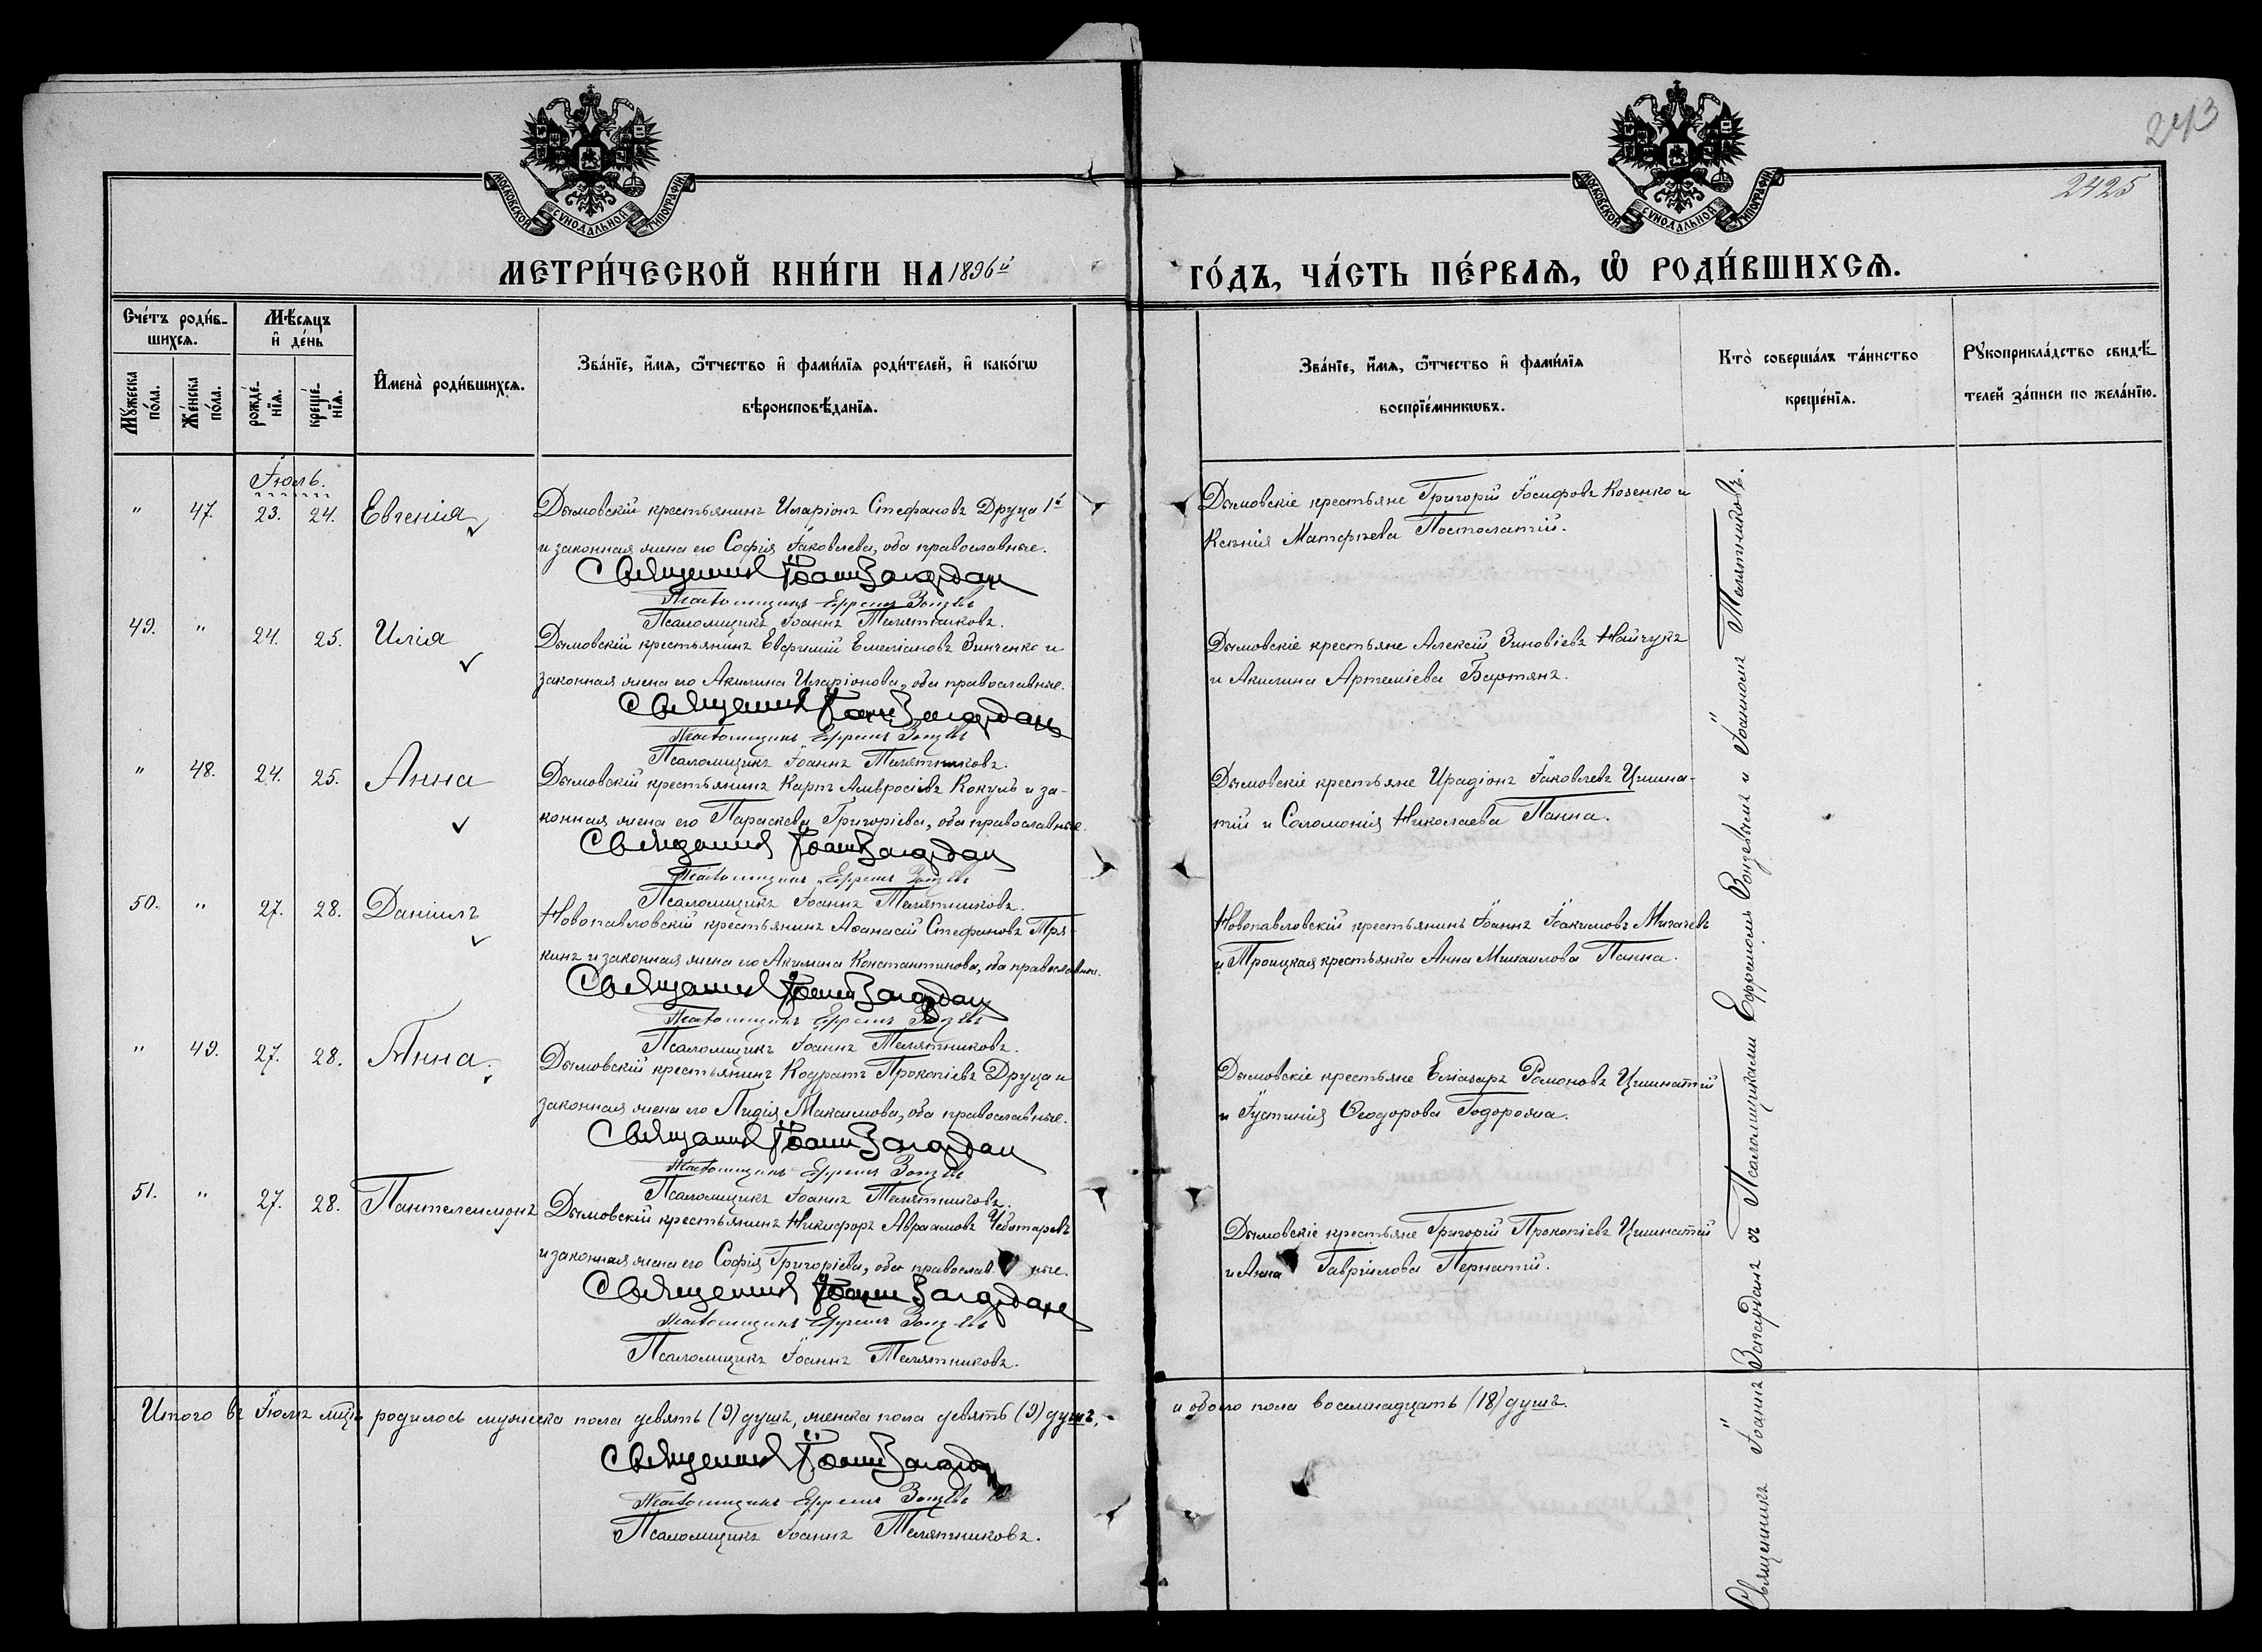 243
2425
МОСКОВСКОЙ СѴНОДАЛЬНОЙ ТИПОГРАФІИ
МОСКОВСКОЙ СѴНОДАЛЬНОЙ ТИПОГРАФІИ
МЕТРИ́ЧЕСКОЙ КНИ́ГИ НА 1896й ГО́ДЪ, ЧА́СТЬ ПЕ́РВАѦ, Ѽ РОДИ́ВШИХСѦ.
Сче́тъ роди́в-
шихсѧ.
Мꙋ́жеска по́ла.
Же́нска по́ла.
Мѣ́сѧцъ
и҆ де́нь
рожде́-
нїѧ.
креще́-
нїѧ.
И҆мена̀ роди́вшихсѧ.
Зва́нїе, и҆́мѧ, ѻ҆́тчество и҆ фами́лїѧ роди́телей, и҆ како́гѡ
вѣроисповѣ́данїѧ.
Зва́нїе, и҆́мѧ, ѻ҆́тчество и҆ фами́лїѧ
воспрїе́мникѡвъ.
Кто̀ соверша́лъ та́инство
креще́нїѧ.
Рꙋкоприкла́дство свидѣ́-
телей за́писи по жела́нїю.
Іюль.
" 47. 23. 24. Евгенія
Дымовскій крестьянинъ Иларіонъ Стефановъ Друца 1й
и законная жена его Софія Іаковлева, оба православные.
Священникъ Іоаннъ Загорданъ
Псаломщикъ Ефремъ
Псаломщикъ Іоаннъ Телятниковъ.
Дымовскіе крестьяне Григорій Іосифовъ Козенко и
Ксенія Матфѣева Постолатій.
49. " 24. 25. Илія
Дымовскій крестьянинъ Евфимій Емеліановъ Зинченко и
законная жена его Акилина Иларіонова, оба православные.
Священникъ Іоаннъ Загорданъ
Псаломщикъ Ефремъ
Псаломщикъ Іоаннъ Телятниковъ.
Дымовскіе крестьяне Алексій Зиновіевъ Найчукъ
и Акилина Артеміева Бартянъ.
" 48. 24. 25. Анна
Дымовскій крестьянинъ Карпъ Амвросіевъ Кокулъ и за-
конная жена его Параскева Григоріева, оба православные.
Священникъ Іоаннъ Загорданъ
Псаломщикъ Ефремъ
Псаломщикъ Іоаннъ Телятниковъ.
Дымовскіе крестьяне Ирадіонъ Іаковлевъ Цишна-
тій и Соломонія Николаева Панна.
50. " 27. 28. Даніилъ
Новопавловскій крестьянинъ Аѳанасій Стефановъ Пря-
кинъ и законная жена его Акилина Константинова, оба православные.
Священникъ Іоаннъ Загорданъ
Псаломщикъ Ефремъ
Псаломщикъ Іоаннъ Телятниковъ.
Новопавловскій крестьянинъ Іоаннъ Іоакимовъ Михачевъ
и Троицкая крестьянка Анна Михаилова Панна.
" 49. 27. 28. Анна.
Дымовскій крестьянинъ Кодратъ Прокопіевъ Друца и
законная жена его Лидія Максимова, оба православные.
Священникъ Іоаннъ Загорданъ
Псаломщикъ Ефремъ
Псаломщикъ Іоаннъ Телятниковъ.
Дымовскіе крестьяне Еліазаръ Романовъ Цишнатій
и Іустинія Ѳеодорова Тодорова.
51. " 27. 28. Пантелеимонъ
Дымовскій крестьянинъ Никифоръ Авраамовъ Чеботаревъ
и законная жена его Софія Григоріева, оба православные.
Священникъ Іоаннъ Загорданъ
Псаломщикъ Ефремъ
Псаломщикъ Іоаннъ Телятниковъ.
Дымовскіе крестьяне Григорій Прокопіевъ Цишнатій
и Анна Гавріилова Пернатій.
Священникъ Іоаннъ Загорданъ съ Псаломщиками Ефремомъ и Іоанномъ Телятниковъ.
Итого въ Іюлѣ мцѣ родилось мужеска пола девять (9) душъ, женска пола девять (9) душъ,
и обоего пола восемнадцать (18) душъ.
Священникъ Іоаннъ Загорданъ
Псаломщикъ Ефремъ
Псаломщикъ Іоаннъ Телятниковъ.